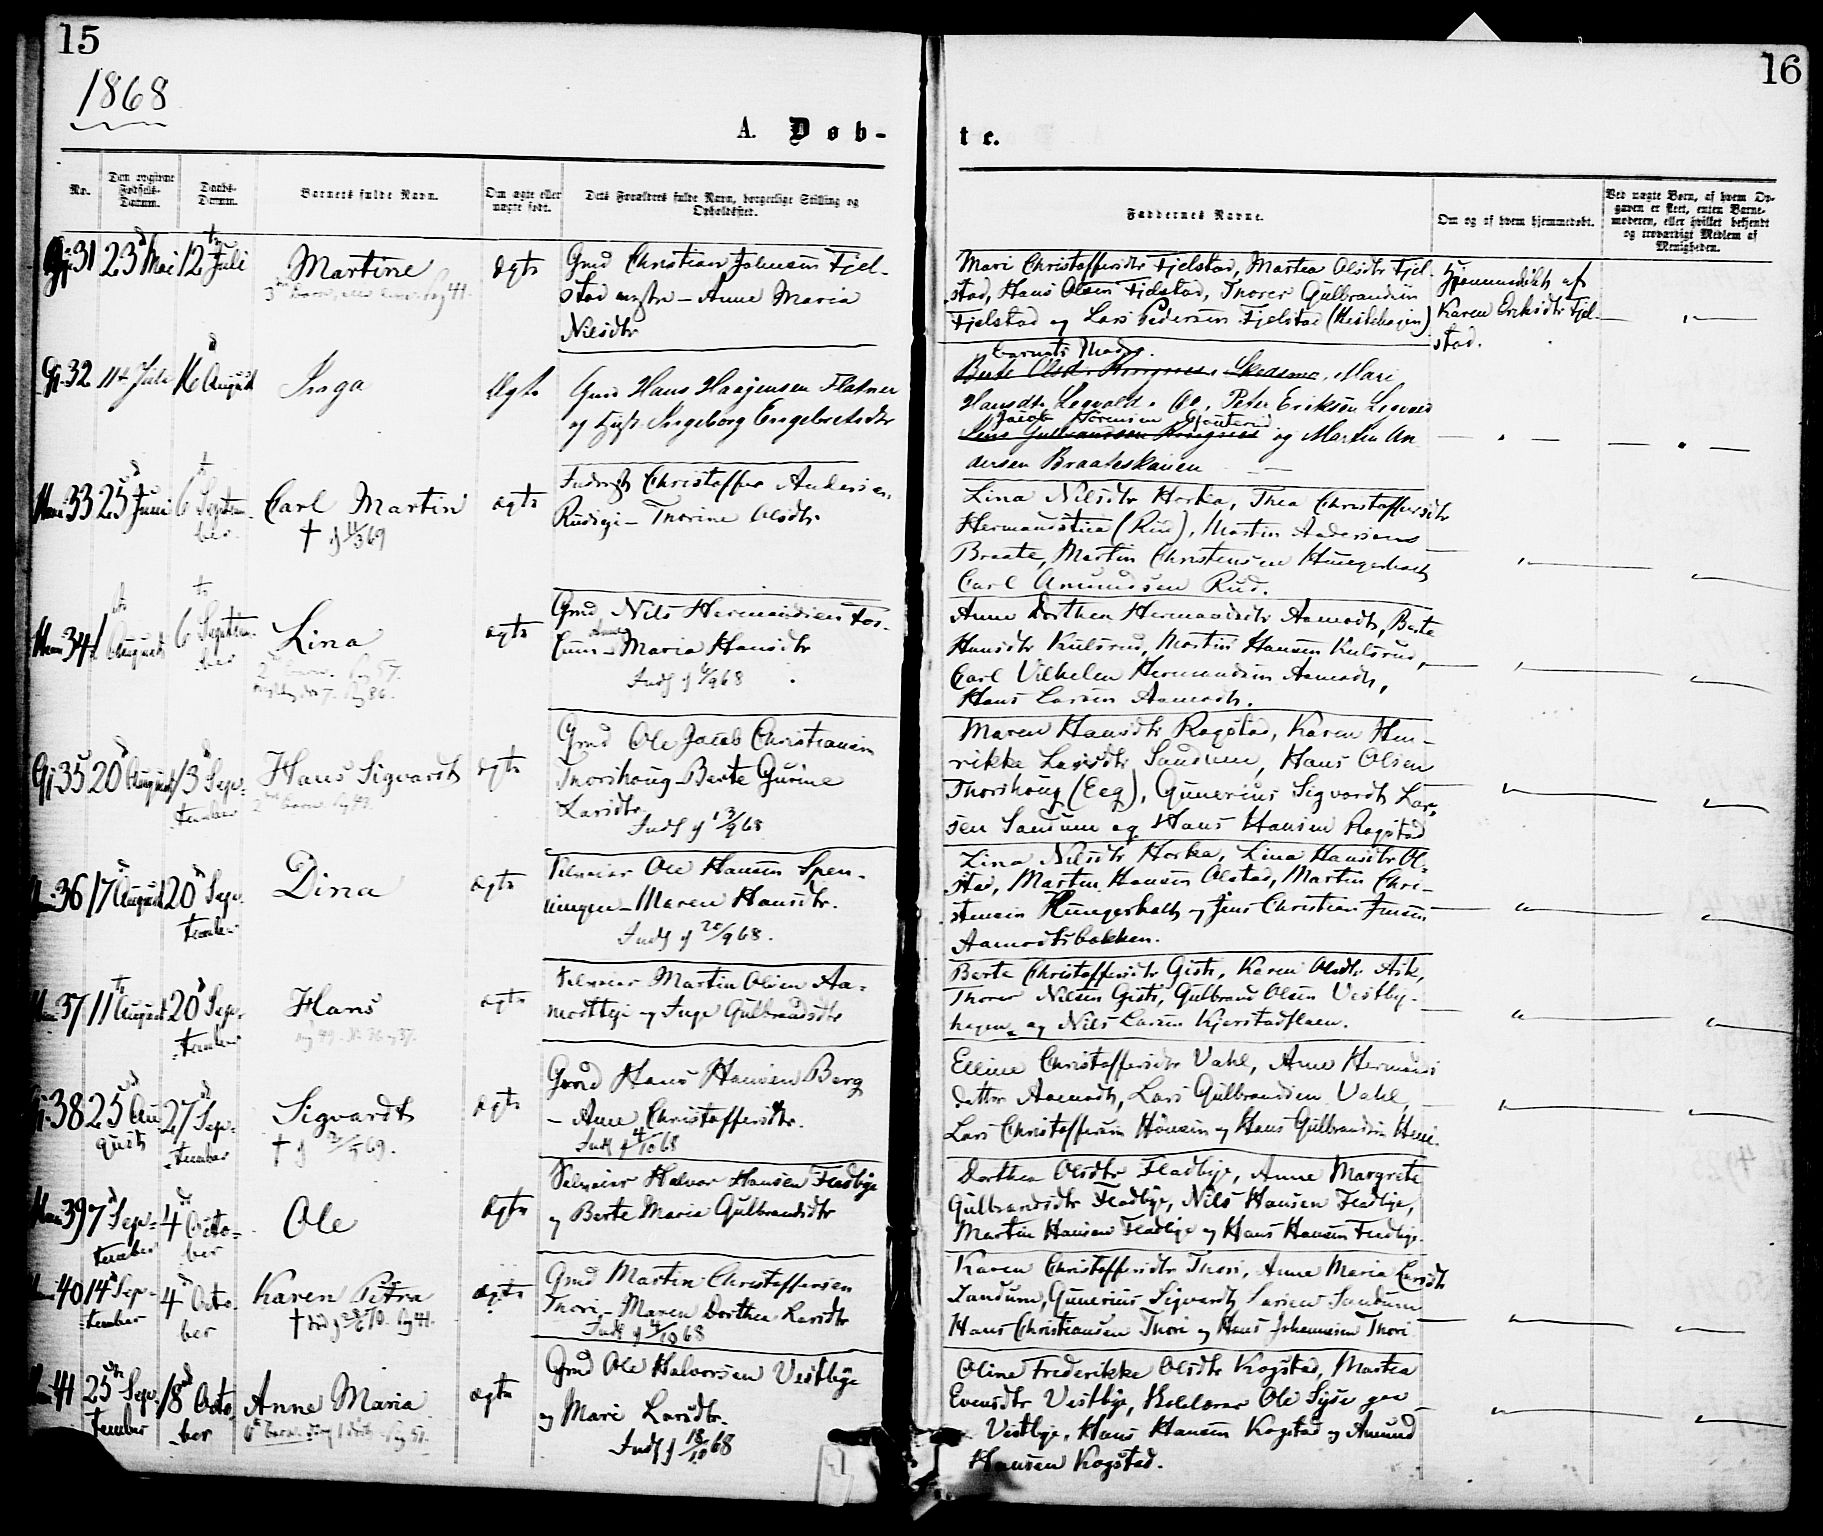 15
16
1868
A. Døb-
te.
No.
Den opgivne Fødsels-Datum.
Daabs-Datum.
Barnets fulde Navn.
Om ægte eller uægte født.
Dets Forældres fulde Navn, borgerlige Stilling og Opholdssted.
Faddernes Navne.
Om og af hvem hjemmedøbt.
Ved uægte Børn, af hvem Opgaven er skeet, enten Barnemoderen, eller hvilket bekjendt og troværdigt Medlem af Menigheden.
31 23d Mai 12t Juli
Martine
ægte
Gmd Christian Johnsen Fjel-
stad myhr – Anne Maria
Nilsdtr
Mari Christoffersdtr Fjelstad, Martea Olsdtr Fjel-
stad, Hans Olsen Fjelstad, Thorer Gulbrandsen
Fjelstad og Lars Pedersen Fjelstad
Hjemmedøbt af
Karen Eriksdtr Fjel-
stad.
32 11te Juli 16d August
Inga
Ægte
Gmd Hans Haagensen Flatner
og Ingeborg Engebretsdtr
Barnets Moder.
Berte Olsdtr Mari
Hansdtr Peter Eriksen
Jacob Sørensen
Jens Gulbrandsen og Martin An
dersen Braateskauen
33 25d Juni 6t Septem-
ber
Carl Martin
† 69
ægte
Christoffer Andersen
Rudseje – Thorine Olsdtr
Lina Nilsdtr Horka, Thea Christoffersdtr
Hermansstua (Rud), Martin Andersen
Braate, Martin Christensen Hungerholt
Carl Amundsen Rud.
34 1 August 6t Septem-
ber
Lina
ægte
Gmd Nils Hermandsen Fos-
Anne
Maria Hansdtr
Inds 6/9 68
Anne Dorthea Hermandsdtr Aamodt, Berte
Hansdtr Kulsrud, Martin Hansen Kulsrud,
Carl Vilhelm Hermandsen Aamodt,
Hans Larsen Aamodt.
35 20d August 13d Sep-
tember
Hans Sigvardt
ægte
Gmd Ole Jacob Christiansen
Thorshoug – Berte Gurine
Larsdtr
Inds 13/9 68
Maren Hansdtr Ragstad, Karen Hen-
rikke Larsdtr Sandum, Hans Olsen
Thorshoug (Eeg), Gunerius Sigvardt Lar-
sen Sandum og Hans Hansen Ragstad
36 17d August 20d Sep-
tember
Dina
ægte
Selveier Ole Hansen Spen-
ningen – Maren Hansdtr.
Inds 20/9 68.
Lina Nilsdtr Horka, Lina Hansdtr Ol-
stad, Martin Hansen Olstad, Martin Chri-
stensen Hungerholt og Jens Christian Jensen
Aamodtsbakken.
37 11te August 20d Sep-
tember
Hans
ægte
Selveier Martin Olsen Aa-
modteje og Inge Gulbrandsdtr
Berte Christoffersdtr Gists, Karen Olsdtr Ask,
Thorer Nilsen Gists, Gulbrand Olsen Vestby-
hagen og Nils Larsen Kjerstadflaen.
38 25d Au-
gust
27d Sep-
tember
Sigvardt
† 69.
ægte
Gmd Hans Hansen Berg
– Anne Christoffersdtr.
Inds 4/10 68
Elline Christoffersdtr Vahl, Anne Hermands
datter Aamodt, Lars Gulbrandsen Vahl,
Lars Christoffersen Hönsen og Hans Gulbrandsen
39 7d Sep-
tember
4d Octo-
ber
Ole
Ægte
Selveier Halvor Hansen Fladbye
og Berte Marie Gulbrandsdtr
Dorthea Olsdtr Fladbye, Anne Margrete
Gulbrandsdtr Fladbye, Nils Hansen Fladbye,
Martin Hansen Fladbye og Hans Hansen Fladbye.
40 14d Sep-
tember
4d Octo-
ber
Karen Petra
†
ægte
Gmd Martin Christoffersen
Thori – Maren Dorthea Larsdtr
Inds 4/10 68
Karen Christoffersdtr Thori, Anne Maria Larsdtr
Sandum, Gunerius Sigvardt Larsen Sandum
Hans Christiansen Thori og Hans Johannesen Thori.
41 25de Sep-
tember
18d Octo-
ber
Anne Maria
ægte
Gmd Ole Halvorsen Vestbye
og Mari Larsdtr.
Inds 18/10 68
Oline Frederikke Olsdtr Kogstad, Martea
Evensdtr Vestbye, Ole Syse paa
Vestbye, Hans Hansen Kogstad og Amund
Hansen Kogstad.